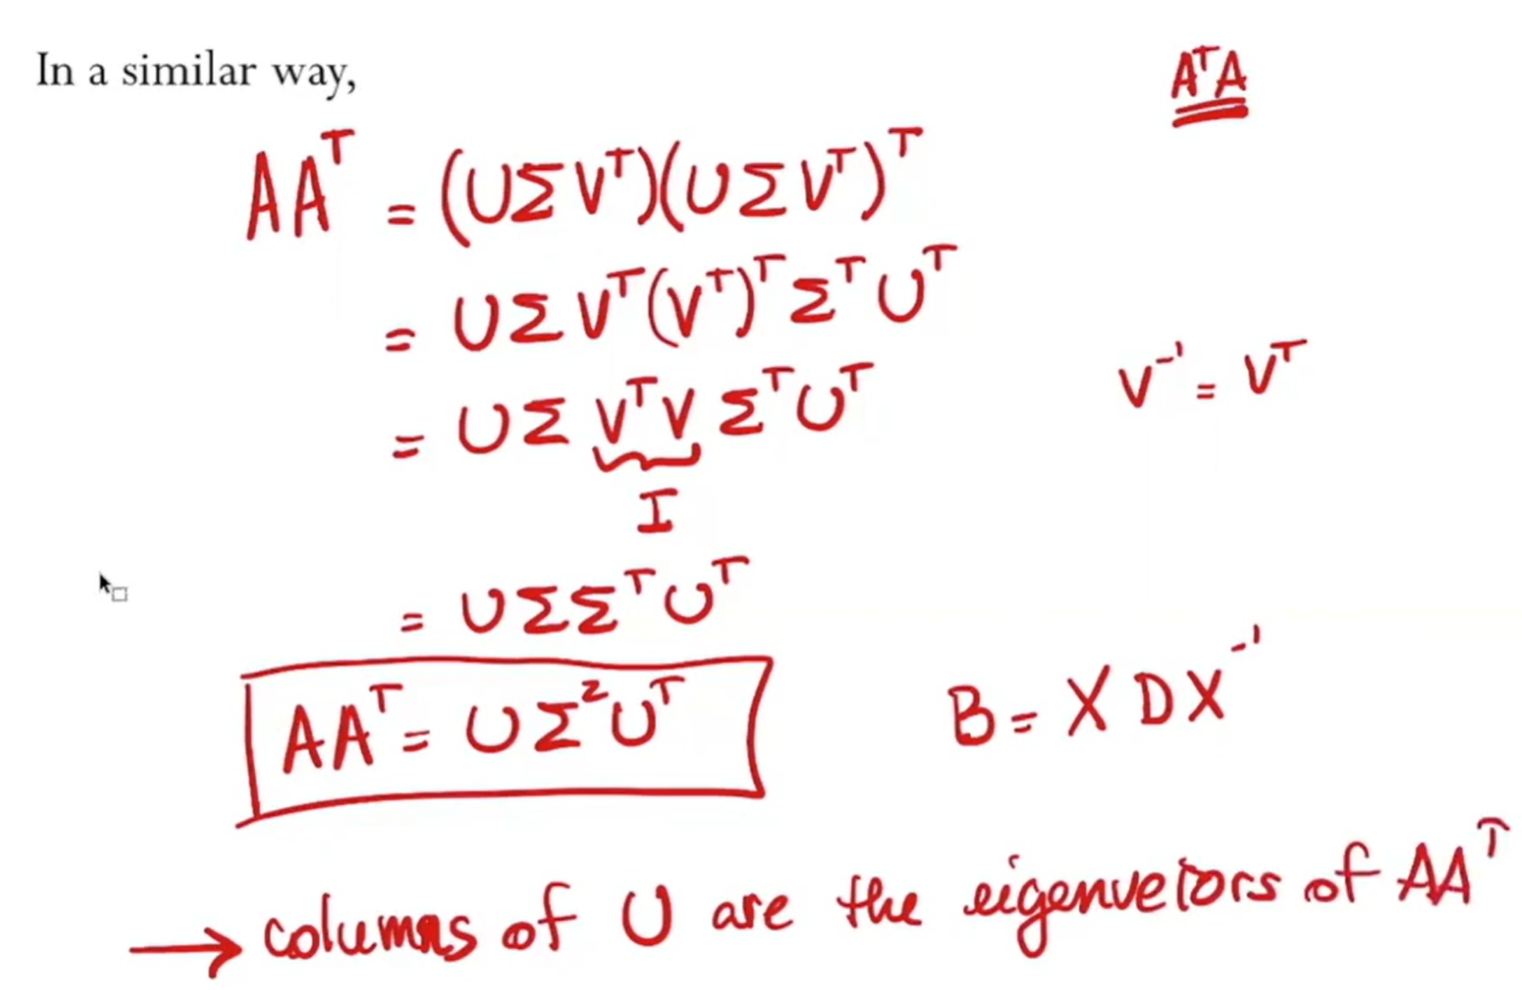 In a similar way,
AᵀA
AAᵀ = (UΣVᵀ)(UΣVᵀ)ᵀ
= UΣVᵀ(Vᵀ)ᵀΣᵀUᵀ
V⁻¹ = Vᵀ
= UΣVᵀVΣᵀUᵀ
I
= UΣΣᵀUᵀ
AAᵀ = UΣ²Uᵀ
B = XDX⁻¹
→ columns of U are the eigenvetors of AAᵀ